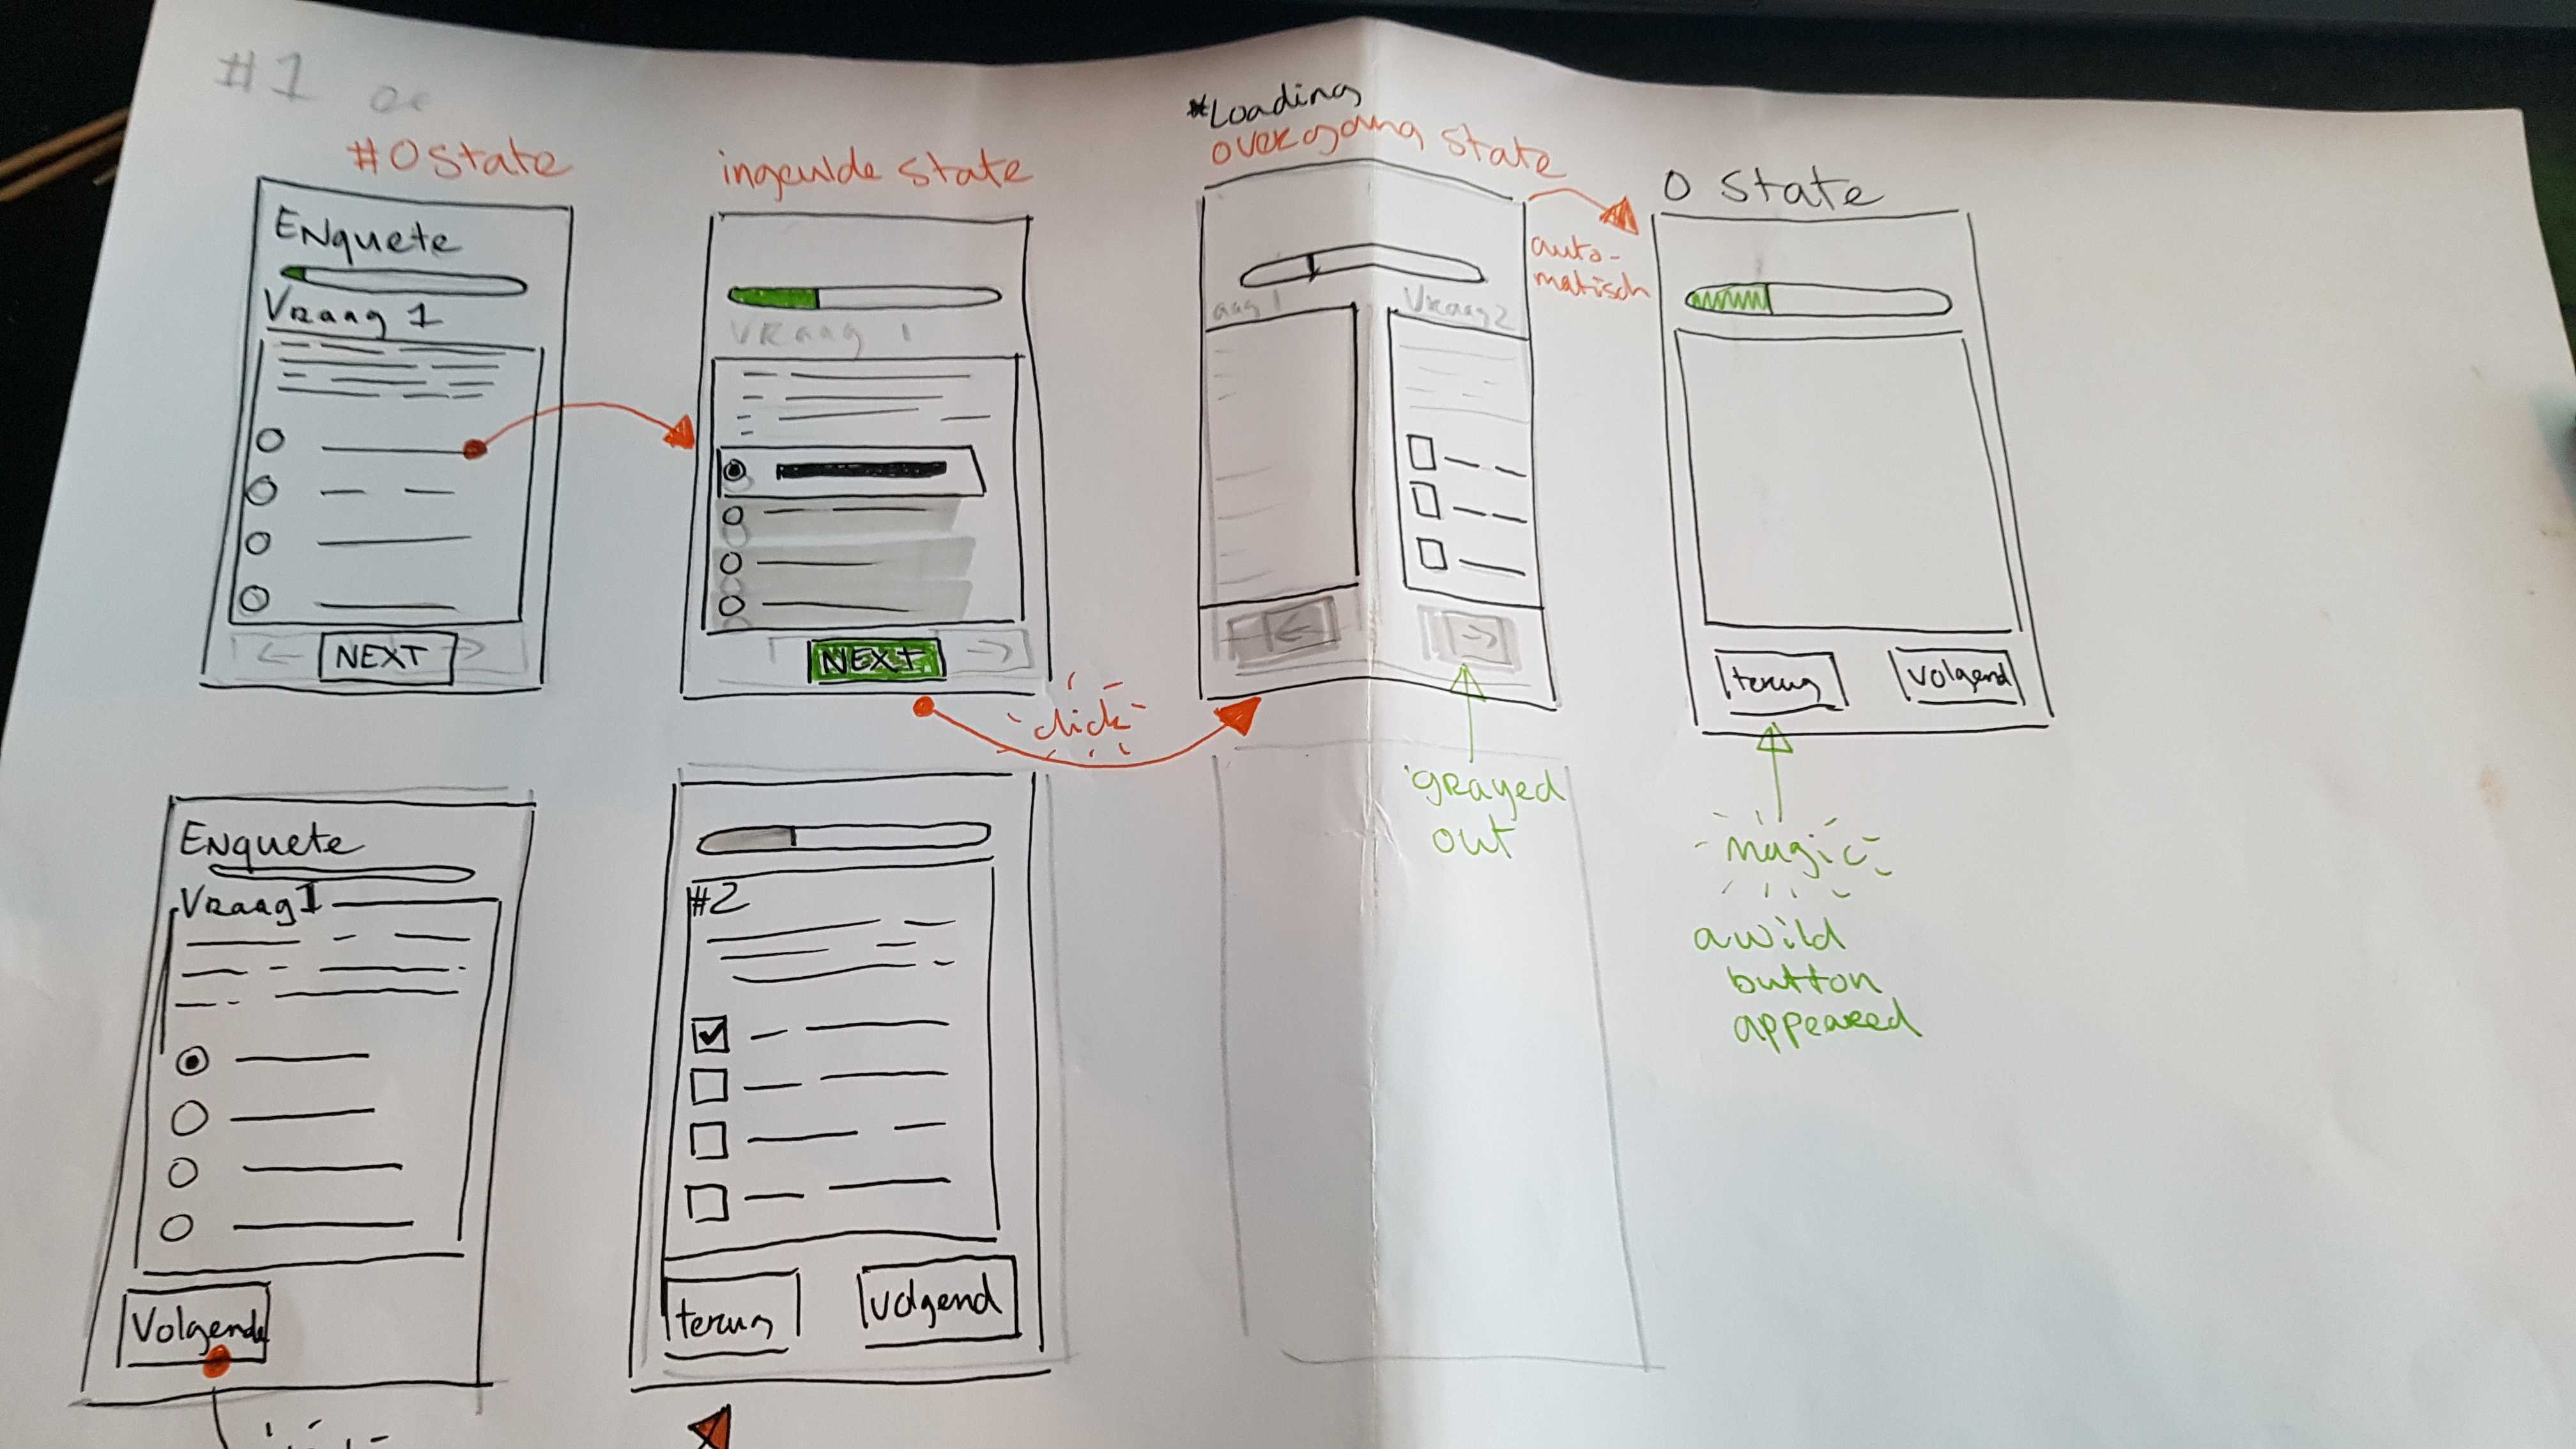 #1
#0 State
Enquete
Vraag 1
NEXT
ingevulde state
VRaag 1
NEXT
click
*Loading
overgang state
aag 1
Vraag 2
grayed
out
auto-
matisch
0 State
terug
Volgend
magic
a wild
button
appeared
Enquete
Vraag 1
Volgende
#2
terug
Volgend